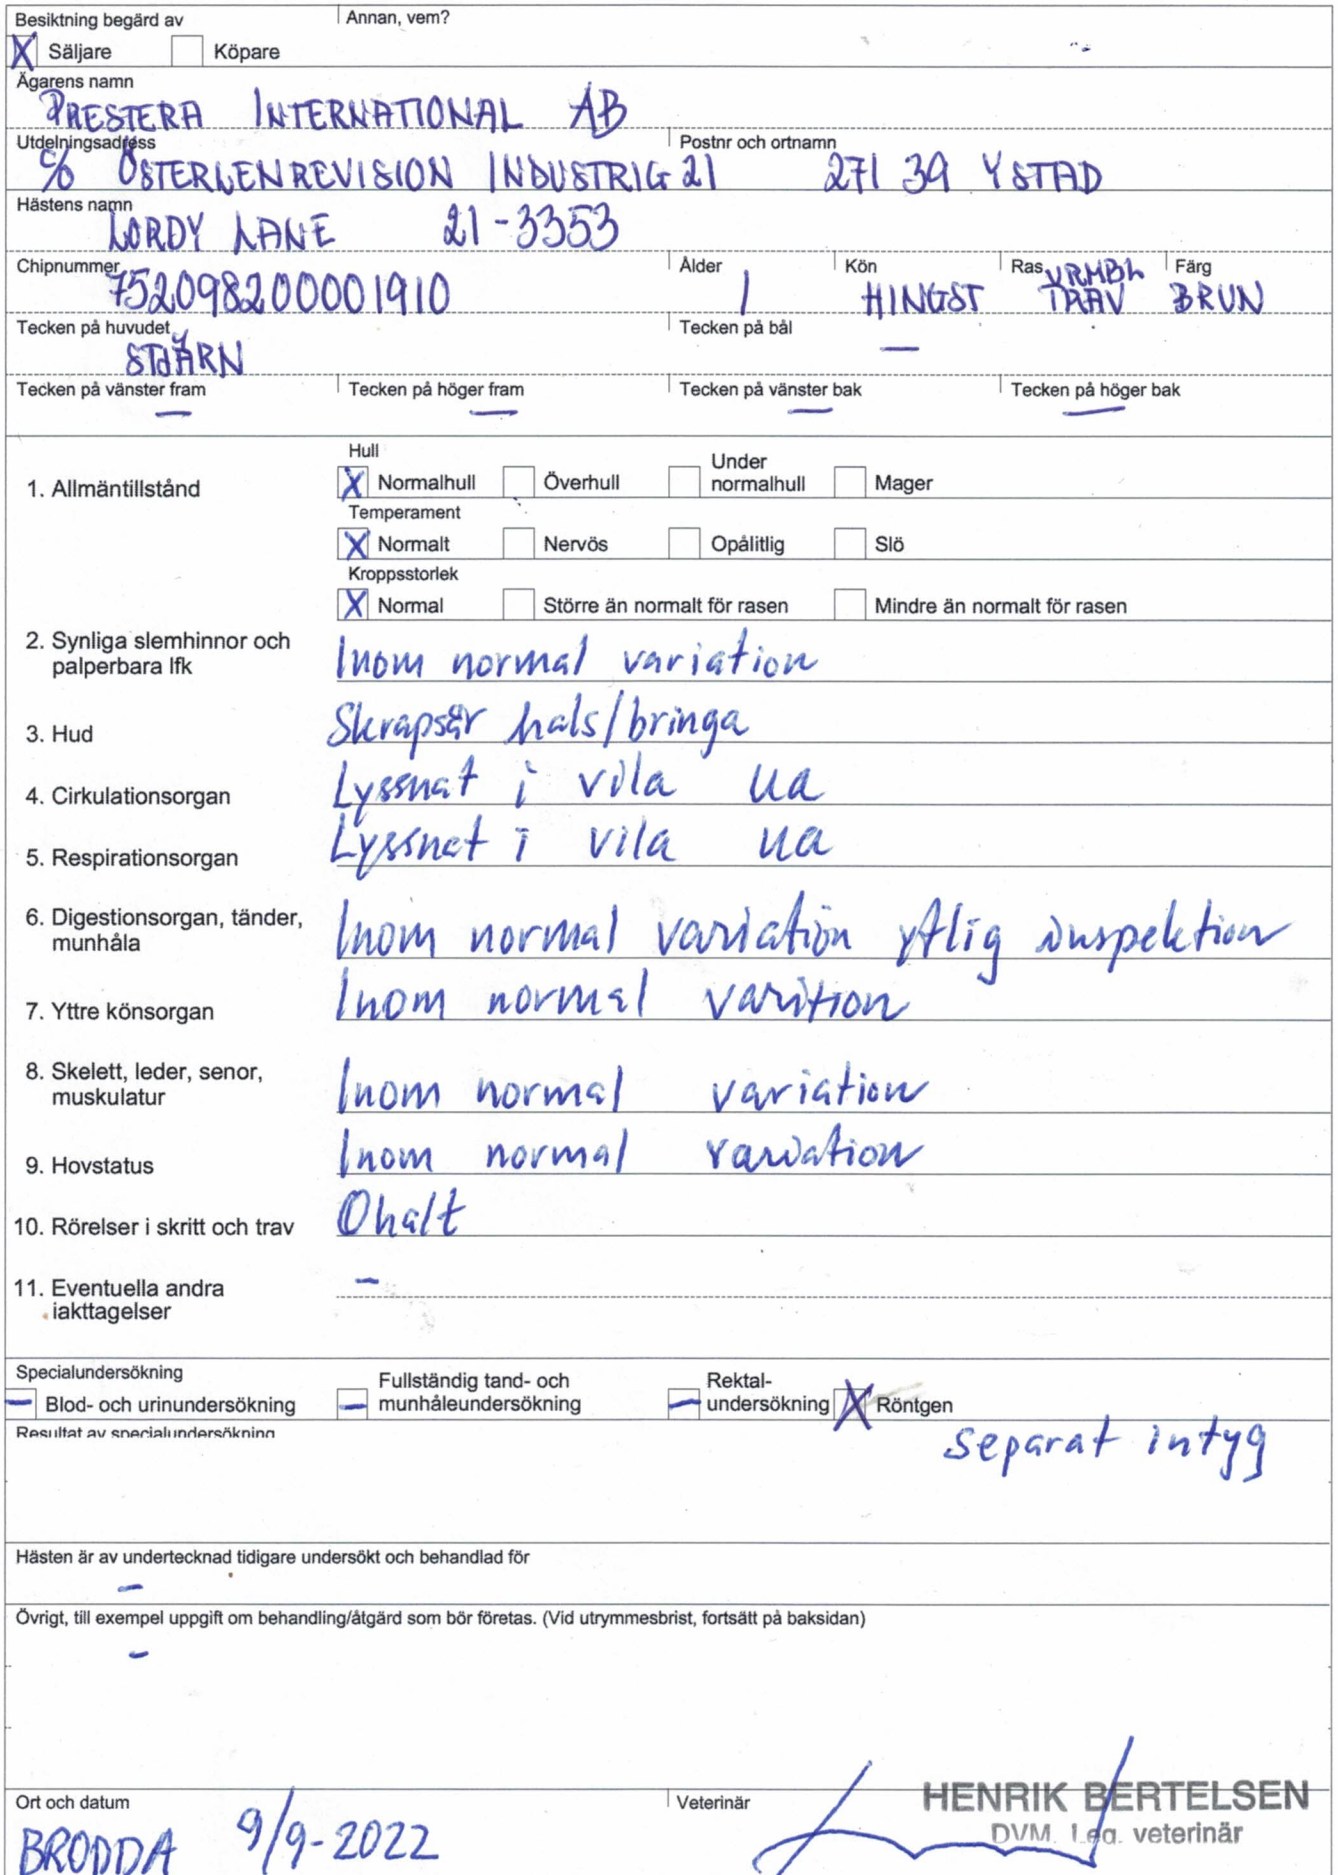 Besiktning begärd av Annan, vem?
X Säljare Köpare
Ägarens namn
PRESTERA INTERNATIONAL AB
Utdelningsadress Postnr och ortnamn
c/o ÖSTERLENREVISION INDUSTRIG 21 271 39 YSTAD
Hästens namn
LORDY LANE 21-3353
Chipnummer Ålder Kön Ras Färg
752098200001910 1 HINGST VRMBL TRAV BRUN
Tecken på huvudet Tecken på bål
STJÄRN —
Tecken på vänster fram Tecken på höger fram Tecken på vänster bak Tecken på höger bak
— — — —
Hull
1. Allmäntillstånd X Normalhull Överhull Under normalhull Mager
Temperament
X Normalt Nervös Opålitlig Slö
Kroppsstorlek
X Normal Större än normalt för rasen Mindre än normalt för rasen
2. Synliga slemhinnor och
palperbara lfk Inom normal variation
3. Hud Skrapsår hals/bringa
4. Cirkulationsorgan Lyssnat i vila ua
5. Respirationsorgan Lyssnat i vila ua
6. Digestionsorgan, tänder,
munhåla Inom normal variation ytlig inspektion
7. Yttre könsorgan Inom normal varition
8. Skelett, leder, senor,
muskulatur Inom normal variation
9. Hovstatus Inom normal variation
10. Rörelser i skritt och trav Ohalt
11. Eventuella andra –
iakttagelser
Specialundersökning
– Blod- och urinundersökning – Fullständig tand- och munhåleundersökning – Rektal- undersökning X Röntgen
Resultat av specialundersökning separat intyg
Hästen är av undertecknad tidigare undersökt och behandlad för
–
Övrigt, till exempel uppgift om behandling/åtgärd som bör företas. (Vid utrymmesbrist, fortsätt på baksidan)
–
Ort och datum Veterinär HENRIK BERTELSEN
BRODDA 9/9-2022 DVM. Leg. veterinär